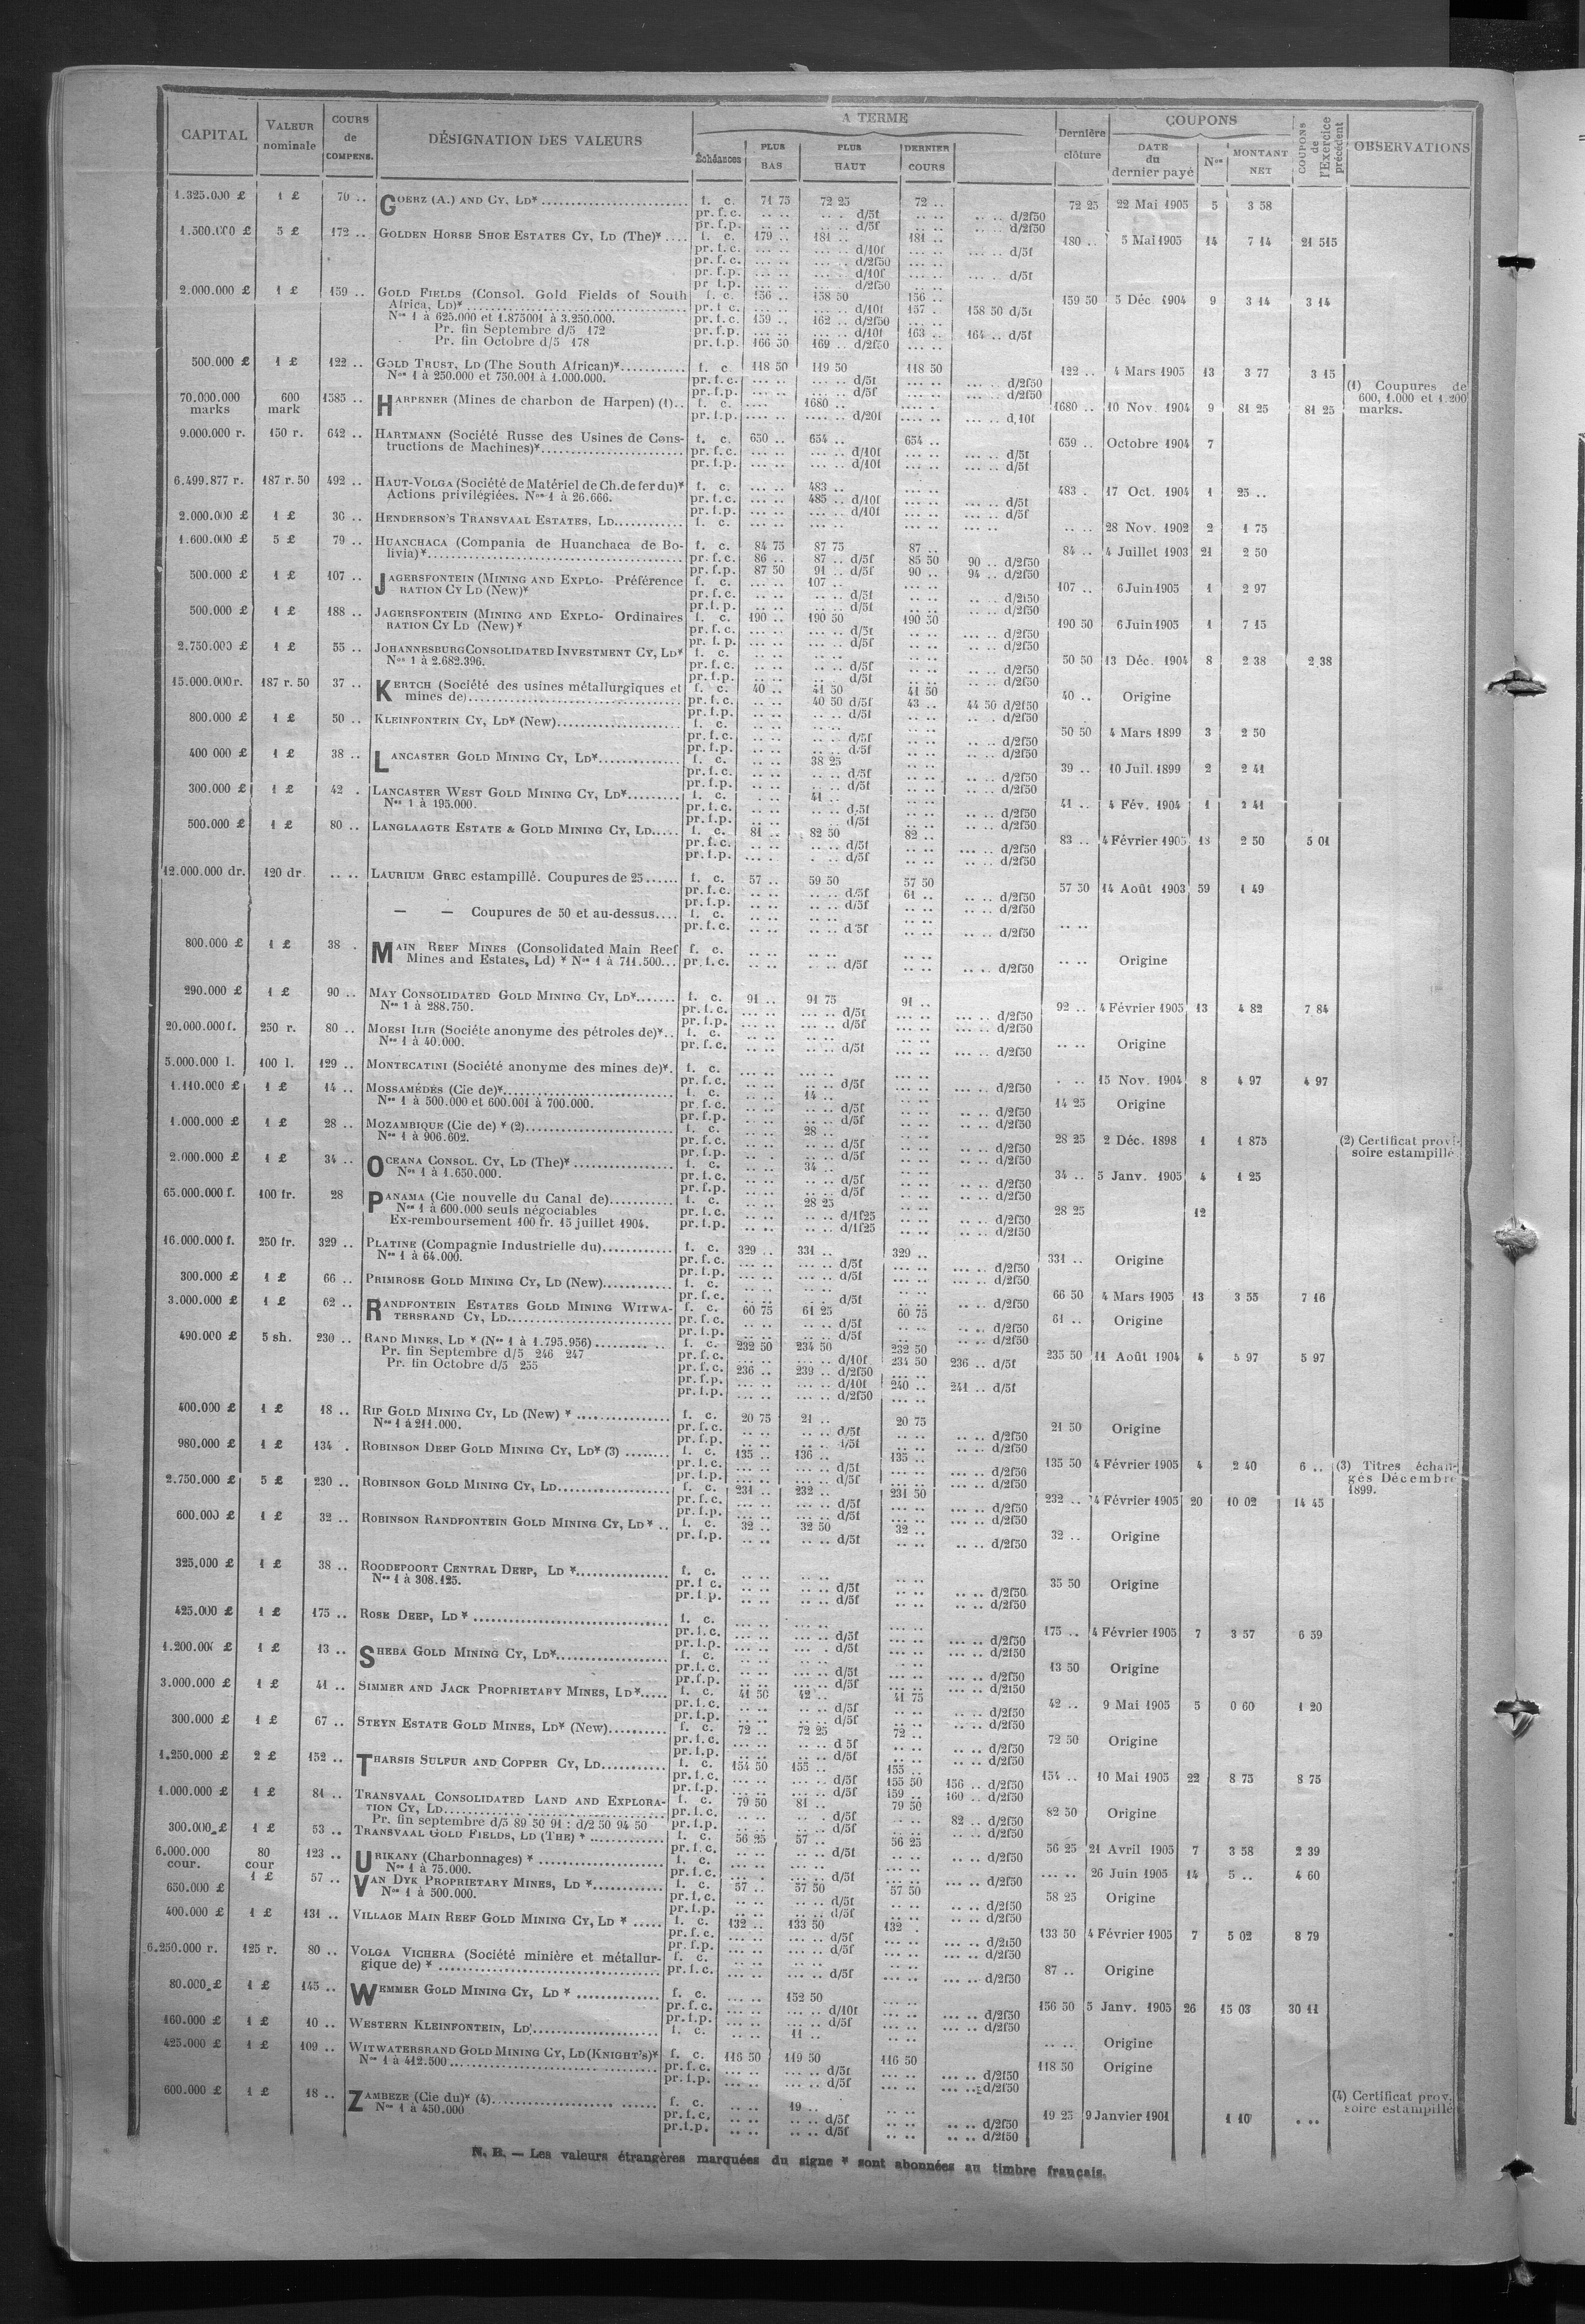 CAPITAL | VALEUR nominale | COURS de COMPENS. | DÉSIGNATION DES VALEURS | A TERME | Échéances | PLUS BAS | PLUS HAUT | DERNIER COURS | Dernière clôture | COUPONS | DATE du dernier payé | Nos | MONTANT NET | COUPONS de l'Exercice précédent | OBSERVATIONS
1.325.000 £ 1 £ 70 .. GOERZ (A.) AND CY, LD* f. c. 71 75 72 25 72 .. 72 25 22 Mai 1905 5 3 58
pr. f. c. .. .. .. . d/5f .. .. .. .. d/2f50
pr. f.p. .. .. .. .. d/5f .. .. .. .. d/2f50
1.500.000 £ 5 £ 172 .. GOLDEN HORSE SHOE ESTATES CY, LD (The)* .... f. c. 179 .. 181 .. 181 .. 180 .. 5 Mai 1905 14 7 14 21 515
pr. f. c. ... .. ... .. d/10f ... .. ... .. d/5f
pr. f. c. ... .. ... .. d/2f50 ... ..
pr. f.p. ... .. ... .. d/10f ... .. ... .. d/5f
pr. f.p. ... .. ... .. d/2f50 ... ..
2.000.000 £ 1 £ 159 .. GOLD FIELDS (Consol. Gold Fields of South f. c. 156 .. 158 50 156 .. 159 50 5 Déc. 1904 9 3 14 3 14
Africa, LD)* pr. f. c. ... .. ... .. d/10f 157 . 158 50 d/5f
Nos 1 à 625.000 et 1.875001 à 3.250.000. pr. f. c. 159 .. 162 .. d/2f50 ... ..
Pr. fin Septembre d/5 172 pr. f.p. ... .. ... .. d/10f 163 .. 164 .. d/5f
Pr. fin Octobre d/5 178 pr. f.p. 166 50 169 .. d/2f50 ... ..
500.000 £ 1 £ 122 .. GOLD TRUST, LD (The South African)* f. c. 118 50 119 50 118 50 122 .. 4 Mars 1905 13 3 77 3 15
Nos 1 à 250.000 et 750.001 à 1.000.000. pr. f. c. ... .. ... .. d/5f ... .. ... .. d/2f50
pr. f.p. ... .. ... .. d/5f ... .. ... .. d/2f50
70.000.000 marks 600 mark 1585 .. HARPENER (Mines de charbon de Harpen) (1).. f. c. .... 1680 .. 1680 .. 10 Nov. 1904 9 81 25 81 25 (1) Coupures de 600, 1.000 et 1.200 marks.
pr. f.p. .... .. .... .. d/20f ... .. ... .. d,10f
9.000.000 r. 150 r. 642 .. HARTMANN (Société Russe des Usines de Cons- f. c. 650 .. 654 .. 654 .. 659 .. Octobre 1904 7
tructions de Machines)* pr. f. c. ... .. ... .. d/10f ... .. ... .. d/5f
pr. f.p. ... .. ... .. d/10f ... .. ... .. d/5f
6.499.877 r. 187 r. 50 492 .. HAUT-VOLGA (Société de Matériel de Ch. de fer du)* f. c. ... .. 483 .. ... .. 483 . 17 Oct. 1904 1 25 ..
Actions privilégiées. Nos 1 à 26.666. pr. f. c. ... .. 485 .. d/10f ... .. ... .. d/5f
pr. f.p. ... .. ... .. d/10f ... .. ... .. d/5f
2.000.000 £ 1 £ 36 .. HENDERSON'S TRANSVAAL ESTATES, LD f. c. .. .. 28 Nov. 1902 2 1 75
1.600.000 £ 5 £ 79 .. HUANCHACA (Compania de Huanchaca de Bo- f. c. 84 75 87 75 87 .. 84 .. 4 Juillet 1903 21 2 50
livia)* pr. f. c. 86 .. 87 .. d/5f 85 50 90 .. d/2f50
pr. f.p. 87 50 91 .. d/5f 90 .. 94 .. d/2f50
500.000 £ 1 £ 107 .. JAGERSFONTEIN (MINING AND EXPLO- Préférence f. c. ... .. 107 .. ... .. 107 .. 6 Juin 1905 1 2 97
RATION CY LD (New)* pr. f. c. .. .. .. .. d/5f .. .. .. .. d/2f50
pr. f.p. .. .. .. .. d/5f .. .. .. .. d/2f50
500.000 £ 1 £ 188 .. JAGERSFONTEIN (MINING AND EXPLO- Ordinaires f. c. 190 .. 190 50 190 50 190 50 6 Juin 1905 1 7 15
RATION CY LD (New)* pr. f. c. ... .. ... .. d/5f ... .. ... .. d/2f50
pr. f.p. ... .. ... .. d/5f ... .. ... .. d/2f50
2.750.000 £ 1 £ 55 .. JOHANNESBURG CONSOLIDATED INVESTMENT CY, LD* f. c. 50 50 13 Déc. 1904 8 2 38 2 38
Nos 1 à 2.682.396. pr. f. c. .. .. .. .. d/5f .. .. .. .. d/2f50
pr. f.p. .. .. .. .. d/5f .. .. .. .. d/2f50
15.000.000 r. 187 r. 50 37 .. KERTCH (Société des usines métallurgiques et f. c. 40 .. 41 50 41 50 40 .. Origine
mines de) pr. f. c. .. .. 40 50 d/5f 43 .. 44 50 d/2f50
pr. f.p. .. .. .. .. d/5f .. .. .. . d/2f50
800.000 £ 1 £ 50 .. KLEINFONTEIN CY, LD* (New) f. c. 50 50 4 Mars 1899 3 2 50
pr. f. c. .. .. .. .. d/5f .. .. .. .. d/2f50
pr. f.p. .. .. .. .. d/5f .. .. .. .. d/2f50
400 000 £ 1 £ 38 .. LANCASTER GOLD MINING CY, LD* f. c. .. .. 38 25 39 .. 10 Juil. 1899 2 2 41
pr. f. c. .. .. .. .. d/5f .. .. .. .. d/2f50
pr. f.p. .. .. .. .. d/5f .. .. .. .. d/2f50
300.000 £ 1 £ 42 . LANCASTER WEST GOLD MINING CY, LD* f. c. .. .. 41 .. 41 .. 4 Fév. 1904 1 2 41
Nos 1 à 195.000. pr. f. c. .. .. .. .. d/5f .. .. .. .. d/2f50
pr. f.p. .. .. .. .. d/5f .. .. .. .. d/2f50
500.000 £ 1 £ 80 .. LANGLAAGTE ESTATE & GOLD MINING CY, LD f. c. 81 .. 82 50 82 .. 83 .. 4 Février 1905 18 2 50 5 01
pr. f. c. .. .. .. .. d/5f .. .. ... .. d/2f50
pr. f.p. ... . . .. d/5f .. .. .. .. d/2f50
12.000.000 dr. 120 dr. .. .. LAURIUM GREC estampillé. Coupures de 25 f. c. 57 .. 59 50 57 50 57 50 14 Août 1903 59 1 49
pr. f. c. .. .. .. .. d/5f 61 .. .. .. d/2f50
pr. f.p. .. .. .. .. d/5f .. .. .. .. d/2f50
— — Coupures de 50 et au-dessus.... f. c. .. .. .. .. .. .. .. ..
pr. f. c. .. .. .. .. d 5f .. .. .. .. d/2f50
800.000 £ 1 £ 38 . MAIN REEF MINES (Consolidated Main Reef f. c. .. .. Origine
Mines and Estates, Ld) * Nos 1 à 711.500... pr. f. c. .. .. .. .. d/5f .. .. .. .. d/2f50
290.000 £ 1 £ 90 .. MAY CONSOLIDATED GOLD MINING CY, LD* f. c. 91 .. 91 75 91 .. 92 .. 4 Février 1905 13 4 82 7 84
Nos 1 à 288.750. pr. f. c. ... .. ... .. d/5f ... .. ... .. d/2f50
pr. f.p. .. .. .. .. d/5f .. .. ... .. d/2f50
20.000.000 f. 250 r. 80 .. MOESI ILIR (Société anonyme des pétroles de)*.. f. c. .. .. Origine
Nos 1 à 40.000. pr. f. c. .. .. .. .. d/5f .. .. ... .. d/2f50
5.000.000 l. 100 l. 129 .. MONTECATINI (Société anonyme des mines de)*. f. c. . .. 15 Nov. 1904 8 4 97 4 97
pr. f. c. .. .. .. .. d/5f .. .. ... .. d/2f50
1.110.000 £ 1 £ 14 .. MOSSAMÉDÈS (Cie de)* f. c. .. .. 14 .. 14 25 Origine
Nos 1 à 500.000 et 600.001 à 700.000. pr. f. c. .. .. .. .. d/5f .. .. .. .. d/2f50
pr. f.p. .. .. .. .. d/5f .. .. .. .. d/2f50
1.000.000 £ 1 £ 28 .. MOZAMBIQUE (Cie de) * (2) f. c. .. .. 28 .. 28 25 2 Déc. 1898 1 1 875 (2) Certificat provi- soire estampillé
Nos 1 à 906.602. pr. f. c. .. .. .. .. d/5f .. .. .. .. d/2f50
pr. f.p. .. .. .. .. d/5f .. .. .. .. d/2f50
2.000.000 £ 1 £ 34 .. OCEANA CONSOL. CY, LD (The)* f. c. .. .. 34 .. 34 .. 5 Janv. 1905 4 1 25
Nos 1 à 1.650.000. pr. f. c. .. .. .. .. d/5f .. .. .. .. d/2f50
pr. f.p. .. .. .. .. d/5f .. .. .. .. d/2f50
65.000.000 f. 100 fr. 28 PANAMA (Cie nouvelle du Canal de) f. c. .. .. 28 25 28 25 12
Nos 1 à 600.000 seuls négociables pr. f. c. .. .. .. .. d/1f25 .. .. .. .. d/2f50
Ex-remboursement 100 fr. 15 juillet 1904. pr. f.p. .. .. .. .. d/1f25 .. .. .. .. d/2f50
16.000.000 f. 250 fr. 329 .. PLATINE (Compagnie Industrielle du) f. c. 329 .. 331 .. 329 .. 331 .. Origine
Nos 1 à 64.000. pr. f. c. ... .. ... .. d/5f ... .. ... .. d/2f50
pr. f.p. ... .. ... .. d/5f ... .. ... .. d/2f50
300.000 £ 1 £ 66 .. PRIMROSE GOLD MINING CY, LD (New) f. c. 66 50 4 Mars 1905 13 3 55 7 16
pr. f. c. .. .. .. .. d/5f .. .. .. .. d/2f50
3.000.000 £ 1 £ 62 .. RANDFONTEIN ESTATES GOLD MINING WITWA- f. c. 60 75 61 25 60 75 61 .. Origine
TERSRAND CY, LD pr. f. c. .. .. .. .. d/5f .. .. .. .. d/2f50
pr. f.p. .. .. .. .. d/5f .. .. .. .. d/2f50
490.000 £ 5 sh. 230 .. RAND MINES, LD * (Nos 1 à 1.795.956) f. c. 232 50 234 50 232 50 235 50 11 Août 1904 4 5 97 5 97
Pr. fin Septembre d/5 246 247 pr. f. c. ... .. ... .. d/10f 234 50 236 .. d/5f
Pr. fin Octobre d/5 255 pr. f. c. 236 .. 239 .. d/2f50 ... ..
pr. f.p. ... .. ... .. d/10f 240 .. 241 .. d/5f
pr. f.p. ... .. ... .. d/2f50 ... ..
400.000 £ 1 £ 18 .. RIP GOLD MINING CY, LD (New) * f. c. 20 75 21 .. 20 75 21 50 Origine
Nos 1 à 211.000. pr. f. c. .. .. .. .. d/5f .. .. .. .. d/2f50
pr. f.p. .. .. .. .. d/5f .. .. .. .. d/2f50
980.000 £ 1 £ 134 . ROBINSON DEEP GOLD MINING CY, LD* (3) f. c. 135 .. 136 .. 135 .. 135 50 4 Février 1905 4 2 40 6 .. (3) Titres échan- gés Décembre 1899.
pr. f. c. ... .. ... .. d/5f ... .. ... .. d/2f50
pr. f.p. ... .. ... .. d/5f ... .. ... .. d/2f50
2.750.000 £ 5 £ 230 .. ROBINSON GOLD MINING CY, LD f. c. 231 .. 232 .. 231 50 232 .. 4 Février 1905 20 10 02 14 45
pr. f. c. ... .. ... .. d/5f ... .. ... .. d/2f50
pr. f.p. ... .. ... .. d/5f ... .. ... .. d/2f50
600.000 £ 1 £ 32 .. ROBINSON RANDFONTEIN GOLD MINING CY, LD* .. f. c. 32 .. 32 50 32 .. 32 .. Origine
pr. f.p. .. .. .. .. d/5f .. .. ... .. d/2f50
325.000 £ 1 £ 38 .. ROODEPOORT CENTRAL DEEP, LD * f. c. .. .. .. .. .. .. 35 50 Origine
Nos 1 à 308.125. pr. f. c. .. .. .. .. d/5f .. .. .. .. d/2f50
pr. f.p. .. .. .. .. d/5f .. .. .. .. d/2f50
425.000 £ 1 £ 175 .. ROSE DEEP, LD* f. c. 175 .. 4 Février 1905 7 3 57 6 59
pr. f. c. ... .. ... .. d/5f ... .. ... .. d/2f50
pr. f.p. ... .. ... . d/5f ... .. ... .. d/2f50
1.200.000 £ 1 £ 13 .. SHEBA GOLD MINING CY, LD* f. c. 13 50 Origine
pr. f. c. .. .. ... .. d/5f ... .. ... .. d/2f50
pr. f.p. .. .. ... .. d/5f ... .. ... .. d/2f50
3.000.000 £ 1 £ 41 .. SIMMER AND JACK PROPRIETARY MINES, LD* f. c. 41 50 42 .. 41 75 42 .. 9 Mai 1905 5 0 60 1 20
pr. f. c. .. .. .. .. d/5f .. .. .. .. d/2f50
pr. f.p. .. .. .. .. d/5f .. .. .. .. d/2f50
300.000 £ 1 £ 67 .. STEYN ESTATE GOLD MINES, LD* (New) f. c. 72 .. 72 25 72 .. 72 50 Origine
pr. f. c. .. .. .. .. d 5f .. .. .. .. d/2f50
pr. f.p. .. .. .. .. d/5f .. .. .. .. d/2f50
1.250.000 £ 2 £ 152 .. THARSIS SULFUR AND COPPER CY, LD f. c. 154 50 155 .. 155 .. 154 .. 10 Mai 1905 22 8 75 8 75
pr. f. c. ... .. ... .. d/5f 155 50 156 .. d/2f50
pr. f.p. ... .. ... .. d/5f 159 .. 160 .. d/2f50
1.000.000 £ 1 £ 81 .. TRANSVAAL CONSOLIDATED LAND AND EXPLORA- f. c. 79 50 81 .. 79 50 82 50 Origine
TION CY, LD pr. f. c. .. .. .. .. d/5f .. .. 82 .. d/2f50
Pr. fin septembre d/5 89 50 91 : d/2 50 94 50 pr. f.p. .. .. .. .. d/5f .. .. .. .. d/2f50
300.000 £ 1 £ 53 .. TRANSVAAL GOLD FIELDS, LD (THE) * f. c. 56 25 57 .. 56 25 56 25 21 Avril 1905 7 3 58 2 39
pr. f. c. .. .. .. .. d/5f .. .. .. .. d/2f50
6.000.000 cour. 80 cour 123 .. URIKANY (Charbonnages) * f. c. ... .. 26 Juin 1905 14 5 .. 4 60
Nos 1 à 75.000. pr. f. c. ... .. ... .. d/5f ... .. ... .. d/2f50
650.000 £ 1 £ 57 .. VAN DYK PROPRIETARY MINES, LD * f. c. 57 .. 57 50 57 50 58 25 Origine
Nos 1 à 500.000. pr. f. c. .. .. .. .. d/5f .. .. .. .. d/2f50
pr. f.p. .. .. .. .. d/5f .. .. .. .. d/2f50
400.000 £ 1 £ 131 .. VILLAGE MAIN REEF GOLD MINING CY, LD * f. c. 132 .. 133 50 132 . 133 50 4 Février 1905 7 5 02 8 79
pr. f. c. ... .. ... .. d/5f ... .. ... .. d/2f50
pr. f.p. ... .. ... .. d/5f ... .. ... .. d/2f50
6.250.000 r. 125 r. 80 .. VOLGA VICHERA (Société minière et métallur- f. c. 87 .. Origine
gique de) * pr. f. c. ... .. ... .. d/5f ... .. ... .. d/2f50
80.000 £ 1 £ 145 .. WEMMER GOLD MINING CY, LD * f. c. ... .. 152 50 156 50 5 Janv. 1905 26 15 03 30 11
pr. f. c. ... .. ... .. d/10f ... .. ... .. d/2f50
pr. f.p. ... .. ... .. d/5f ... .. ... .. d/2f50
160.000 £ 1 £ 10 .. WESTERN KLEINFONTEIN, LD f. c. .. .. 11 .. .. .. .. .. Origine
425.000 £ 1 £ 109 .. WITWATERSRAND GOLD MINING CY, LD (KNIGHT'S)* f. c. 116 50 119 50 116 50 118 50 Origine
Nos 1 à 412.500 pr. f. c. ... .. ... .. d/5f ... .. ... .. d/2f50
pr. f.p. ... .. ... .. d/5f ... .. ... .. d/2f50
600.000 £ 1 £ 18 .. ZAMBEZE (Cie du)* (4) f. c. .. .. 19 .. .. .. 19 25 9 Janvier 1901 1 10 . .. (4) Certificat prov. soire estampillé
Nos 1 à 450.000 pr. f. c. .. .. .. .. d/5f .. .. .. .. d/2f50
pr. f.p. .. .. .. .. d/5f .. .. .. .. d/2f50
N. B. — Les valeurs étrangères marquées du signe * sont abonnées au timbre français.